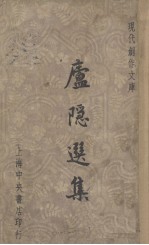 現代創作文庫
廬隱選集
上海中央書店印行